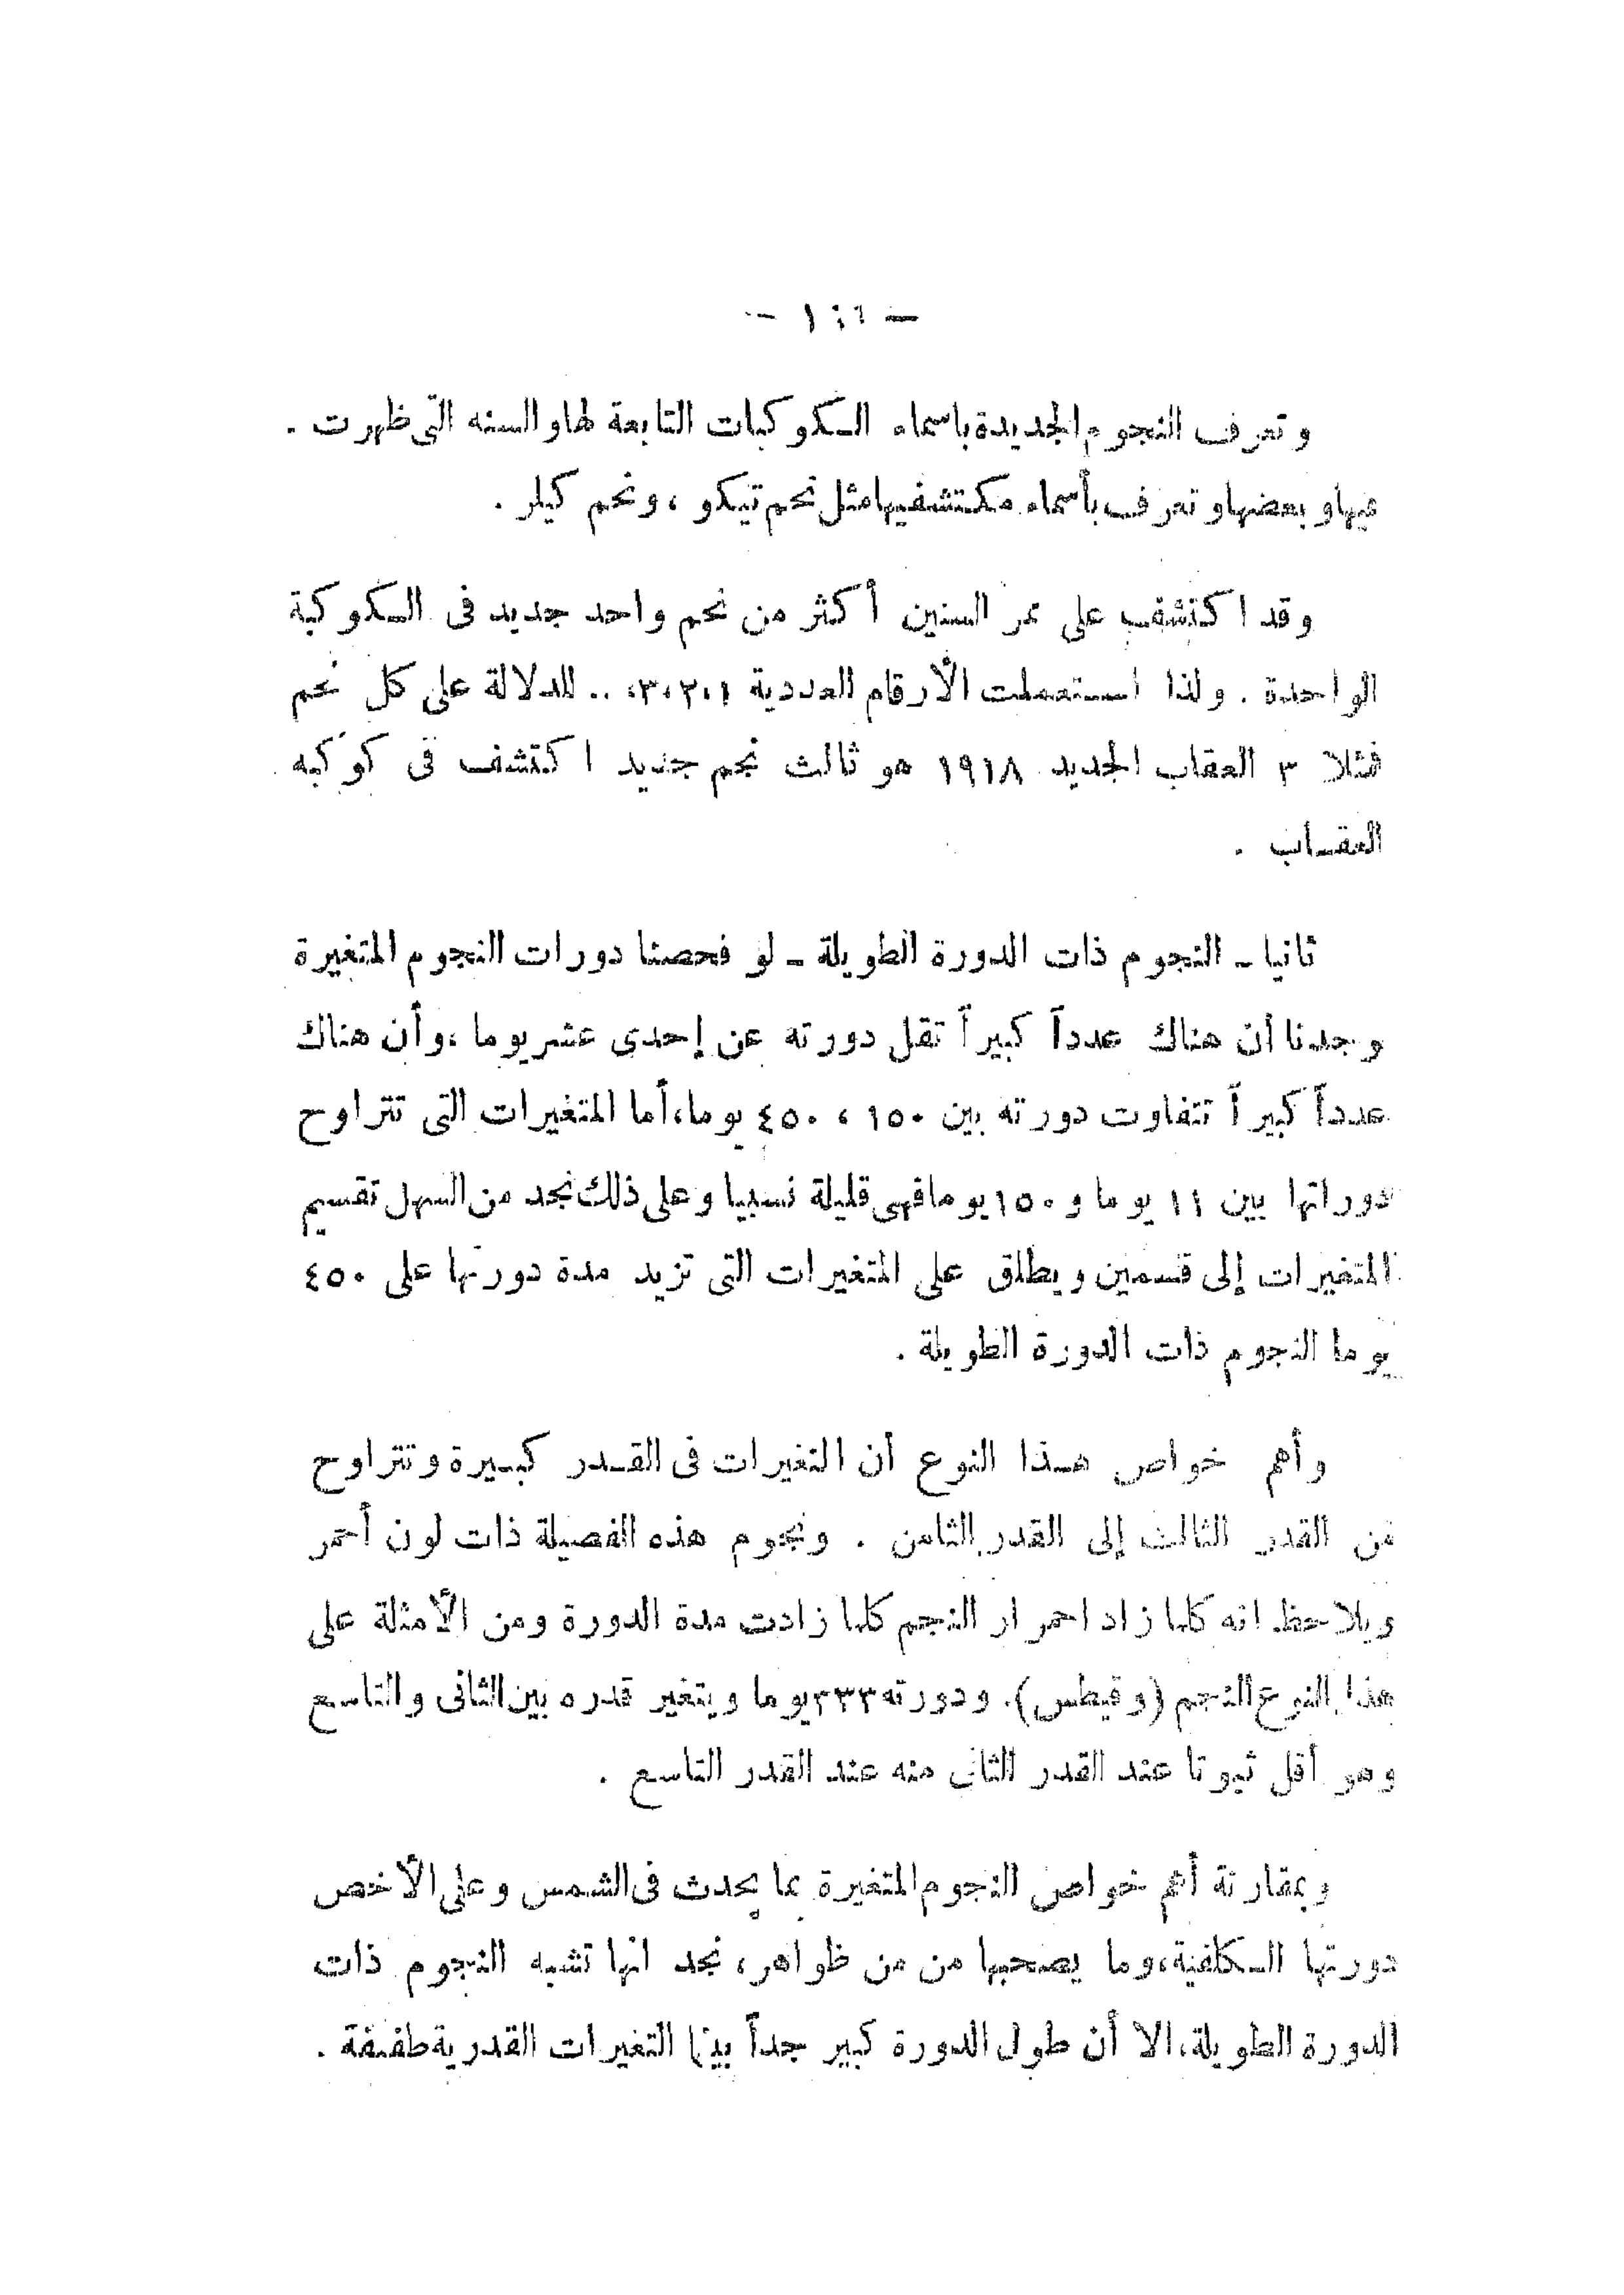 — ١٤٦ —
وتعرف النجوم الجديدة باسماء الكوكبات التابعة لها والسنه التى ظهرت .
فيها وبعضها وتعرف بأسماء مكتشفيها مثل نجم تيكو ، ونجم كيلر .
وقد اكتشف على ممر السنين أكثر من نجم واحد جديد فى الكوكبة
الواحدة . ولذا استعملت الأرقام العددية ١،٢،٣، .. للدلالة على كل نجم
فمثلا ٣ العقاب الجديد ١٩١٨ هو ثالث نجم جديد اكتشف فى كوكبه
العقاب .
ثانيا ـ النجوم ذات الدورة الطويلة ـ لو فحصنا دورات النجوم المتغيرة
وجدنا أن هناك عدداً كبيراً تقل دورته عن إحدى عشر يوما ، وأن هناك
عدداً كبيراً تتفاوت دورته بين ١٥٠ ، ٤٥٠ يوما، أما المتغيرات التى تتراوح
دوراتها بين ١١ يوما و ١٥٠ يوما فهى قليلة نسبيا وعلى ذلك نجد من السهل تقسيم
المتغيرات إلى قسمين ويطلق على المتغيرات التى تزيد مدة دورتها على ٤٥٠
يوما النجوم ذات الدورة الطويلة .
وأهم خواص هذا النوع أن التغيرات فى القدر كبيرة وتتراوح
من القدر الثالث إلى القدر الثامن . ونجوم هذه الفصيلة ذات لون أحمر
ويلاحظ انه كلما زاد احمرار النجم كلما زادت مدة الدورة ومن الأمثلة على
هذا النوع النجم (وقيطس). ودورته ٣٣٣ يوما ويتغير قدره بين الثانى والتاسع
وهو أقل ثبوتا عند القدر الثانى منه عند القدر التاسع .
وبمقارنة أهم خواص النجوم المتغيرة بما يحدث فى الشمس وعلى الأخص
دورتها الكلفية، وما يصحبها من من ظواهر، نجد انها تشبه النجوم ذات
الدورة الطويلة، الا أن طول الدورة كبير جداً بينما التغيرات القدرية طفيفة .